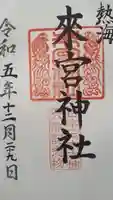 熱海
來宮神社
令和五年十二月二九日